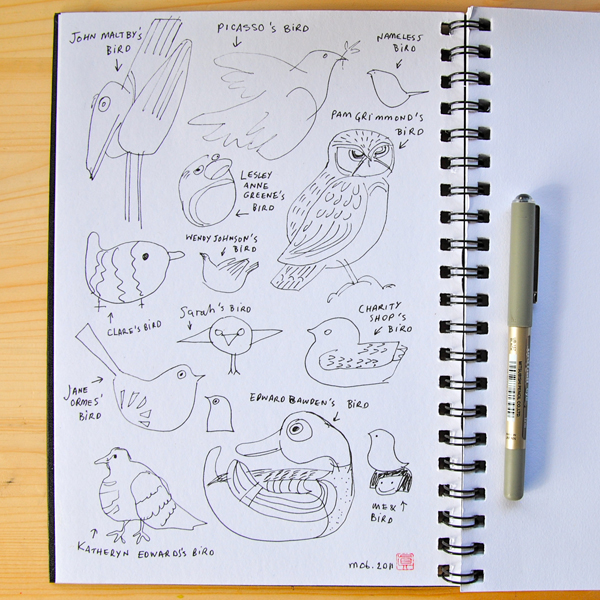 JOHN MALTBY'S
BIRD
PICASSO'S BIRD
NAMELESS
BIRD
PAM GRIMMOND'S
BIRD
LESLEY
ANNE
GREENE'S
BIRD
WENDY JOHNSON'S
BIRD
CLARE'S BIRD
Sarah's BIRD
CHARITY
SHOP'S
BIRD
JANE
ORMES'
BIRD
EDWARD BAWDEN'S BIRD
ME &
BIRD
KATHERYN EDWARDS'S BIRD
mob. 2011